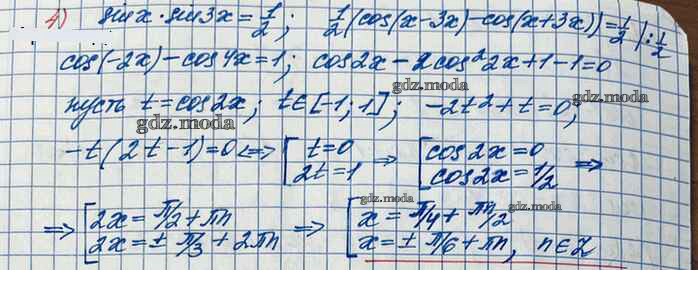 4) sinx·sin3x=1/2; 1/2(cos(x-3x)-cos(x+3x))=1/2 |:1/2
cos(-2x)-cos4x=1; cos2x-2cos²2x+1-1=0
gdz.moda
пусть t=cos2x; t∈[-1;1]; -2t²+t=0;
gdz.moda
-t(2t-1)=0 <=> [t=0 2t=1 => [cos2x=0 cos2x=1/2 =>
gdz.moda
gdz.moda
=> [2x=π/2+πn 2x=±π/3+2πn => [x=π/4+πn/2 x=±π/6+πn, n∈Z
gdz.moda